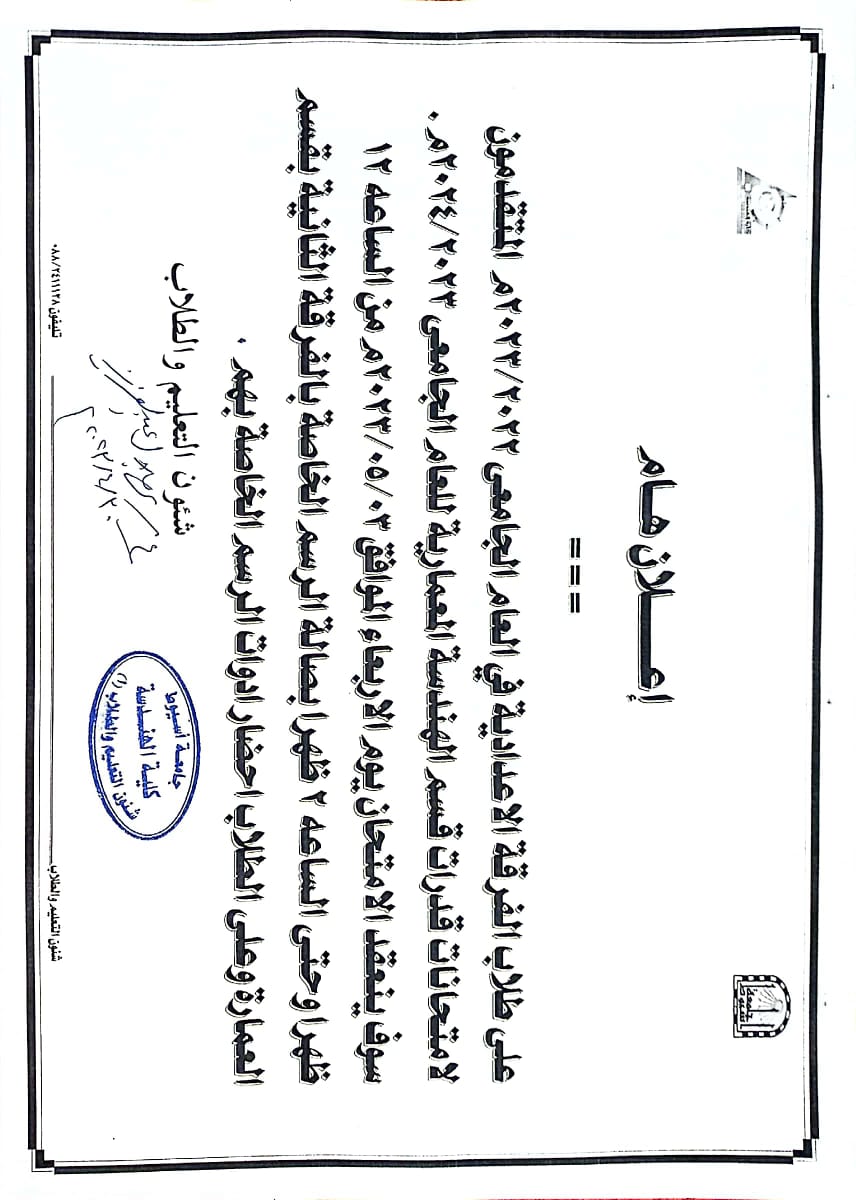 جامعة أسيوط
إعـــلان هـام
===
على طلاب الفرقة الاعدادية في العام الجامعى ٢٠٢٣/٢٠٢٢م المتقدمون
لامتحانات قدرات قسم الهندسة المعمارية للعام الجامعى ٢٠٢٤/٢٠٢٣م.
سوف ينعقد الامتحان يوم الاربعاء الموافق ٢٠٢٣/٠٥/٠٣م من الساعه ١٢
ظهرا وحتى الساعه ٢ ظهرا بصالة الرسم الخاصة بالفرقة الثانية بقسم
العمارة وعلى الطلاب احضار ادوات الرسم الخاصة بهم .
شئون التعليم والطلاب
جامعة أسيوط
كلية الهندسة
شئون التعليم والطلاب (١)
شئون التعليم والطلاب
تليفون ٠٨٨/٢٤١١١٢٨